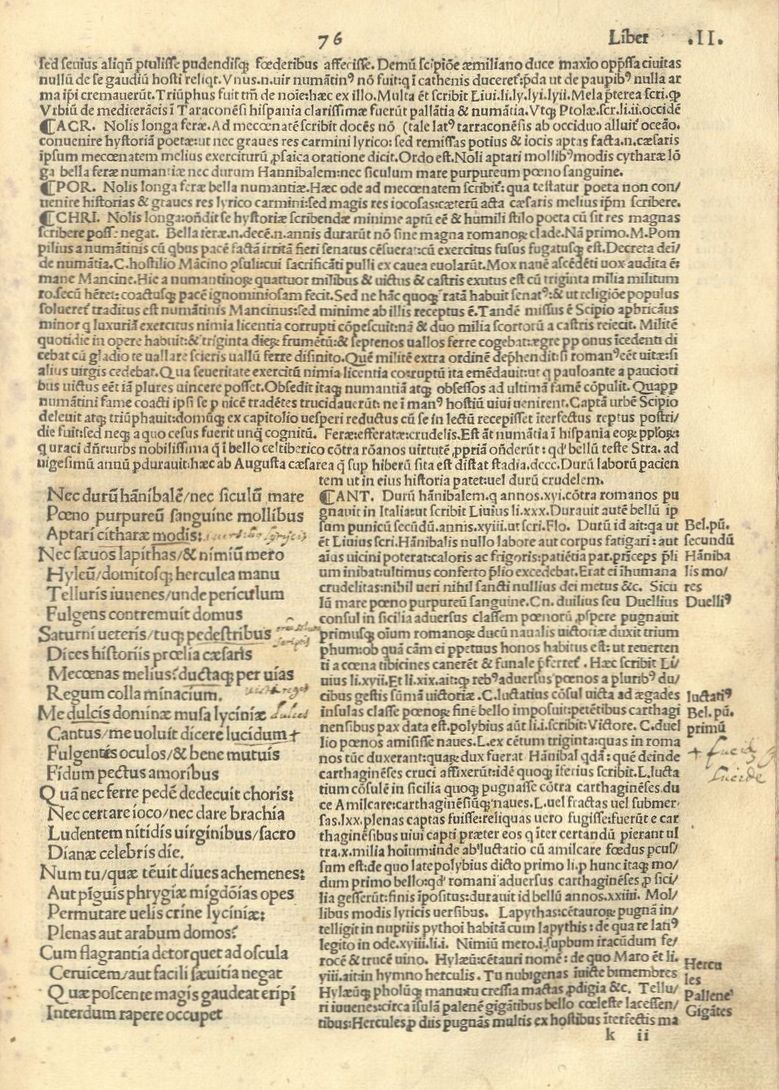 76 Liber .II.
sed seuius aliqñ ptulisse pudendisq; fœderibus affecisse. Demũ scipiõe æmiliano duce maxĩo opp̃ssa ciuitas
nullũ de se gaudiũ hosti reliqt. Vnus.n.uir numãtin⁹ nõ fuit:q ĩ cathenis duceret᷑:p̃da ut de paupib⁹ nulla ar
ma ip̃i cremauerũt. Triũphus fuit tm̃ de noĩe:hæc ex illo. Multa ẽt scribit Liui.li.ly.lyi.lyii. Mela p̃terea scri.q;
Vrbiũ de mediterãeis ĩ Taraconẽsi hispania clarissimæ fuerũt pallãtia & numãtia. Vtq; Ptolæ.scr.li.ii.occidẽ
¶ACR. Nolis longa feræ. Ad mecœnatẽ scribit docẽs nõ (tale lat⁹ tarraconẽsis ab occiduo alluit᷑ oceão.
conuenire hystoriã poetæ:ut nec graues res carmini lyrico: sed remissas potius & iocis aptas facta.n.cæsaris
ipsum mecœnatem melius exerciturũ ꝓsaica oratione dicit. Ordo est. Noli aptari mollib⁹ modis cytharæ lõ
ga bella feræ numantiæ nec durum Hannibalem: nec siculum mare purpureum pœno sanguine.
¶POR. Nolis longa feræ bella numantiæ. Hæc ode ad mecœnatem scribit᷑: qua testatur poeta non con/
uenire historias & graues res lyrico carmini: sed magis res iocosas: cæterũ acta cæsaris melius ip̃m scribere.
¶CHRI. Nolis longa:oñdit se hystoriæ scribendæ minime aptũ eẽ & humili stilo poeta cũ sit res magnas
scribere posse negat. Bella feræ.n.decẽ.n.annis durarũt nõ sine magna romanoꝝ clade. Nã primo.M.Pom
pilius a numãtinis cũ qbus pacẽ factã irritã fieri senatus cẽsuerat:cũ exercitus fusus fugatusq; est. Decreta dei/
de numãtia.C.hostilio Mãcino ꝓsuli:cui sacrificãti pulli ex cauea euolarũt. Mox nauẽ ascẽdẽti uox audita ẽ:
mane Mancine. Hic a numantinoꝝ quattuor milibus & uictus & castris exutus est cũ triginta milia militum
ro.secũ hẽret: coactusq; pacẽ ignominiosam fecit. Sed ne hãc quoq; ratã habuit senat⁹:& ut religiõe populus
solueret᷑ traditus est numãtinis Mancinus:sed minime ab illis receptus ẽ. Tandẽ missus ẽ Scipio aphricãus
minor q luxuriã exercitus nimia licentia corrupti cõpescuit:nã & duo milia scortorũ a castris reiecit. Militẽ
quotidie in opere habuit:& triginta dieꝝ frumẽtũ:& septenos uallos ferre cogebat:ægre pp onus ĩcedenti di
cebat cũ gladio te uallare scieris uallũ ferre disinito. Quẽ militẽ extra ordinẽ dep̃hendit:si roman⁹ eẽt uitæ:si
alius uirgis cedebat. Qua seueritate exercitũ nimia licentia corruptũ ita emẽdauit:ut q pauloante a pauciori
bus uictus eẽt iã plures uincere posset. Obsedit itaq; numantiã atq; obsessos ad ultimã famẽ cõpulit. Quapp
numãtini fame coacti ipsi se p nicẽ tradẽtes trucidauerũt: ne ĩ man⁹ hostiũ uiui uenirent. Captã urbẽ Scipio
deleuit atq; triũphauit:domũq; ex capitolio uesperi reductus cũ se in lectũ recepisset ĩterfectus reptus postri/
die fuit:sed neq; a quo cesus fuerit unq̃ cognitũ. Feræ:efferatæ:crudelis. Est ãt numãtia ĩ hispania eoꝝ pploꝝ:
q uraci dñr:urbs nobilissima q ĩ bello celtiberico cõtra rõanos uirtutẽ ꝓpriã oñderũt: qd⁹ bellũ teste Stra. ad
uigesimũ annũ pdurauit:hæc ab Augusta cæsarea q̃ sup hiberũ sita est distat stadia.dccc. Durũ laborũ pacien
tem ut in eius historia patet:uel durũ crudelem.
Nec durũ hãnibalẽ/nec siculũ mare
Pœno purpureũ sanguine mollibus
Aptari citharæ modis:
Nec sæuos lapithas/& nimiũ mero
Hyleũ/domitosq; herculea manu
Telluris iuuenes/unde periculum
Fulgens contremuit domus
Saturni ueteris/tuq; pedestribus
Dices historiis prœlia cæsaris
Mecœnas melius:ductaq; per uias
Regum colla minacium.
Me dulcis dominæ musa lyciniæ dulces
Cantus/me uoluit dicere lucidum +
Fulgentẽs oculos/& bene mutuis
Fidum pectus amoribus
Quã nec ferre pedẽ dedecuit choris:
Nec certare ioco/nec dare brachia
Ludentem nitidis uirginibus/sacro
Dianæ celebris die.
Num tu/quæ tẽuit diues achemenes:
Aut pĩguis phrygiæ migdõias opes
Permutare uelis crine lyciniæ:
Plenas aut arabum domos?
Cum flagrantia detorquet ad oscula
Ceruicem/aut facili sæuitia negat
Quæ poscente magis gaudeat eripi
Interdum rapere occupet
¶CANT. Durũ hãnibalem.q annos.xyi.cõtra romanos pu
gnauit in Italia:ut scribit Liuius li.xxx. Durauit autẽ bellũ ip
sum punicũ secũdũ.annis.xyiii.ut scri.Flo. Durũ id ait:qa ut
ẽt Liuius scri. Hãnibalis nullo labore aut corpus fatigari: aut
aĩus uicini poterat:caloris ac frigoris:patiẽtia par.p̃riceps p̃li
um inibat:ultimus conserto p̃lio excedebat. Erat ei ĩhumana
crudelitas:nihil ueri nihil sancti nullius dei metus &c. Sicu
lũ mare pœno purpureũ sanguine. Cn. duilius seu Duellius
consul in sicilia aduersus classem pœnorũ ꝓspere pugnauit
primusq; oĩum romanoꝝ ducũ naualis uictoriæ duxit trium
phum:ob quã cãm ei ppetuus honos habitus est:ut reuerten
ti a cœna tibicines canerẽt & funale p̃ferret᷑. Hæc scribit Li/
uius li.xvii. Et li.xix.ait:q; reb⁹ aduersus pœnos a plurib⁹ du/
cibus gestis sũma uictoriæ. C.luctatius cõsul uicta ad ægades
insulas classe pœnoꝝ finẽ bello imposuit:petẽtibus carthagi
nensibus pax data est.polybius aũt li.i.scribit:Victore. C.duel
lio pœnos amisisse naues. L.ex cẽtum triginta:quas in roma
nos tũc duxerant:quaꝝ dux fuerat Hãnibal qdã: quẽ deinde
carthaginẽses cruci affixerũt:idẽ quoq; ĩferius scribit.L.lucta
tium cõsulẽ in sicilia quoq; pugnasse cõtra carthaginẽses.du
ce Amilcare:carthaginẽsiũq; naues. L.uel fractas uel submer/
sas.lxx.plenas captas fuisse:reliquas uero fugisse:fuerũt e car
thaginẽsibus uiui capti præter eos q ĩter certandũ pierant ul
tra.x.milia hoĩum:inde ab luctatio cũ amilcare fœdus pcus/
sum est:de quo late polybius dicto primo li.p hunc itaq; mo/
dum primo bello:qd⁹ romani aduersus carthaginẽses ꝓ sici/
lia gesserũt:finis ĩpositus:durauit id bellũ annos.xxiiii. Mol/
libus modis lyricis uersibus. Lapythas:cẽtauroꝝ pugnã in/
telligit in nuptiis pythoi habitã cum lapythis: de qua re lati⁹
legito in ode.xyiii.li.i. Nimiũ mero.i.supbum iracũdum fe/
rocẽ & trucẽ uino. Hylæũ:cẽtauri nomẽ: de quo Maro ẽt li.
yiii.ait:in hymno herculis. Tu nubigenas ĩuicte bimembres
Hylæũq; pholũq; manu:tu cressia mactas ꝓdigia &c. Tellu/
ri iuuenes:circa ĩsulã palenẽ gigãtibus bello cœleste lacessen/
tibus:Hercules ꝓ diis pugnãs multis ex hostibus ĩterfectis ma
Bel.pũ.
secundũ
Hãniba
lis mo/
res
Duelli⁹
luctati⁹
Bel.pũ.
primũ
+ lucid
lucide
Hercu
les
Pallene⁹
Gigãtes
k ii